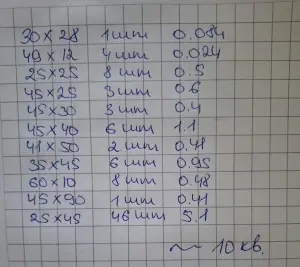 30×28 1 шт 0.084
49×12 4 шт 0.024
25×25 8 шт 0.5
45×25 3 шт 0.6
45×30 3 шт 0.4
45×40 6 шт 1.1
41×50 2 шт 0.41
35×45 6 шт 0.95
60×10 8 шт 0.48
45×90 1 шт 0.41
25×45 46 шт 5.1
~ 10 кв.